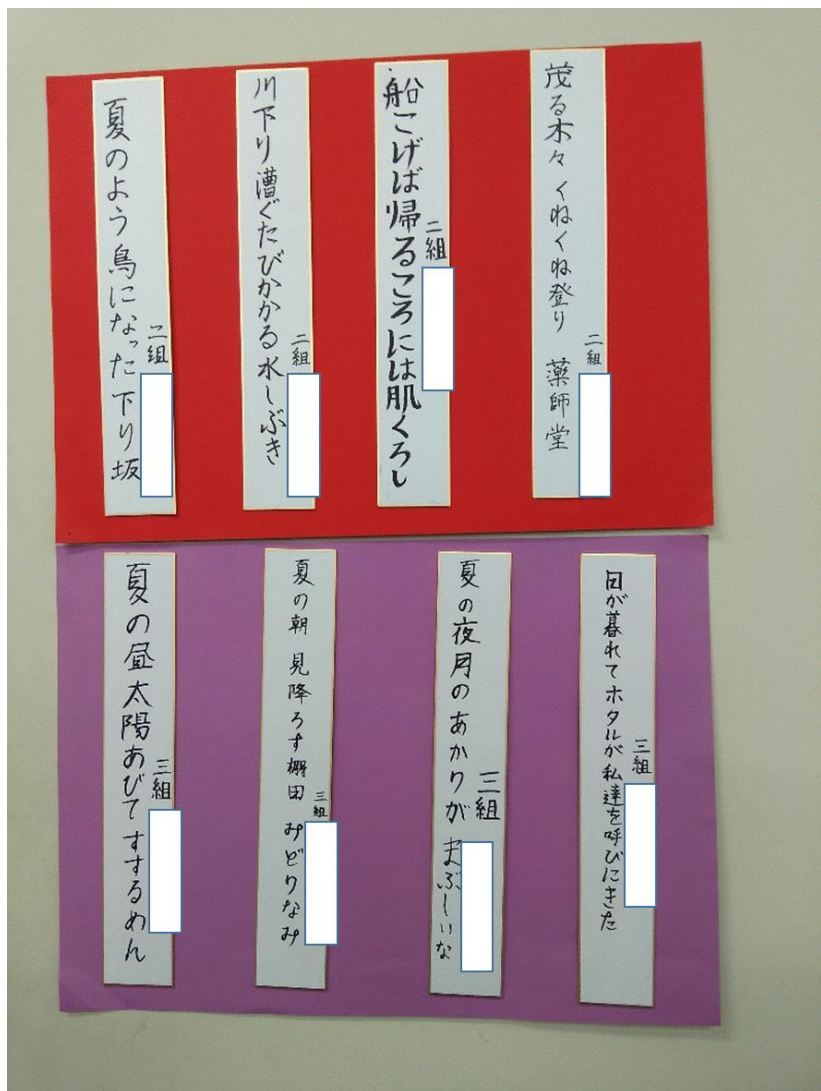 茂る木々くねくね登り 薬師堂
二組
船こげば帰るころには肌くろし
二組
川下り漕ぐたびかかる水しぶき
二組
夏のよう鳥になった下り坂
二組
日が暮れてホタルが私達を呼びにきた
三組
夏の夜月のあかりがまぶしいな
三組
夏の朝 見降ろす棚田 みどりなみ
三組
夏の昼太陽あびてすするめん
三組